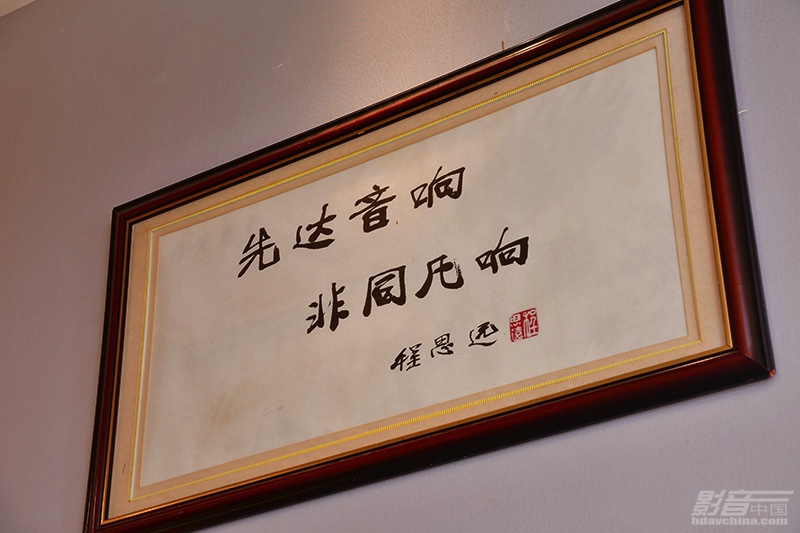 先达音响
非同凡响
程思远
影音中国
hdavchina.com